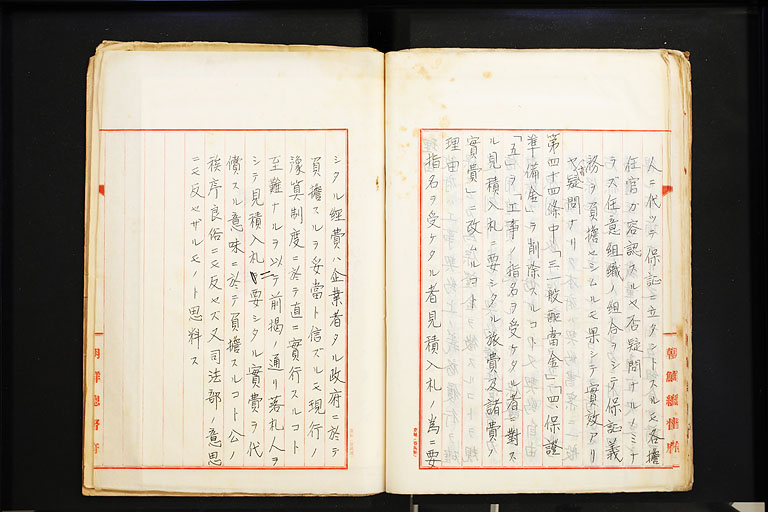 人ニ代ッテ保証ニ立タントスルモ各擔
任官ガ容認スルヤ否疑問ナルノミナ
ラズ任意組織ノ組合ヲシテ保証義
務ヲ負擔セシムルモ果シテ實效アリ
ヤ疑問ナリ
第四十四條中「三一般配當金」「四保證
準備金」ヲ削除スルコト
「五」ヲ「工事ノ指名ヲ受ケタル者ニ對ス
ル見積入札ニ要シタル旅費及諸費ノ
實費」ニ改ムルコト
理由
指名ヲ受ケタル者見積入札ノ為ニ要
シタル經費ハ企業者タル政府ニ於テ
負擔スルヲ妥當ト信ズルモ現行ノ
豫算制度ニ於テ直ニ實行スルコト
至難ナルヲ以テ前揭ノ通リ落札人ヲ
シテ見積入札ニ要シタル實費ヲ代
償スル意味ニ於テ負擔スルコト公ノ
秩序良俗ニモ反セズ又司法部ノ意思
ニモ反セザルモノト思料ス
朝鮮總督府
朝鮮總督府